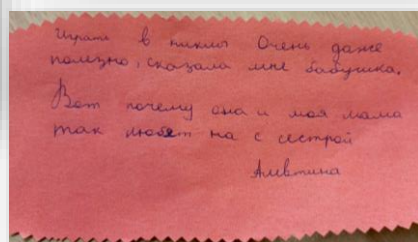 Играть в куклы Очень даже
полезно, сказала мне бабушка.
Вот почему она и моя мама
так любят на с сестрой
Алевтина